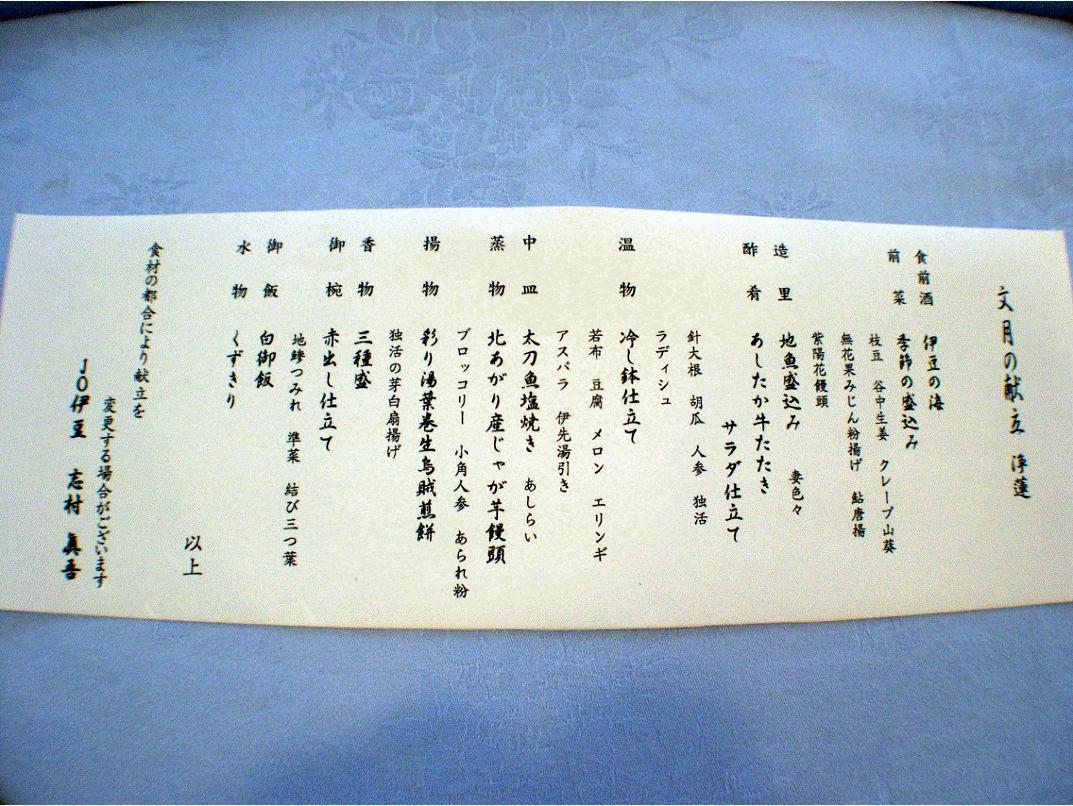 文月の献立 浄蓮
食前酒 伊豆の海
前菜 季節の盛込み
枝豆 谷中生姜 クレープ山葵
無花果みじん粉揚げ 鮎唐揚
紫陽花饅頭
造里 地魚盛込み 妻色々
酢肴 あしたか牛たたき
サラダ仕立て
針大根 胡瓜 人参 独活
ラディシュ
温物 冷し鉢仕立て
若布 豆腐 メロン エリンギ
アスパラ 伊先湯引き
中皿 太刀魚塩焼き あしらい
蒸物 北あがり産じゃが芋饅頭
ブロッコリー 小角人参 あられ粉
揚物 彩り湯葉巻生烏賊煎餅
独活の芽白扇揚げ
香物 三種盛
御椀 赤出し仕立て
地鯵つみれ 準菜 結び三つ葉
御飯 白御飯
水物 くずきり
以上
食材の都合により献立を
変更する場合がございます
JO伊豆 志村 眞吾